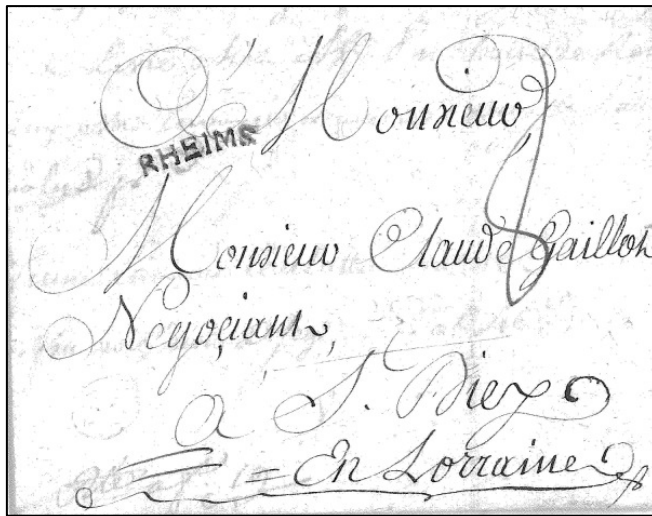 A Monsieur
RHEIMS
Monsieur Claude Gaillon
Negoçiant,
a S. Diez
En Lorraine